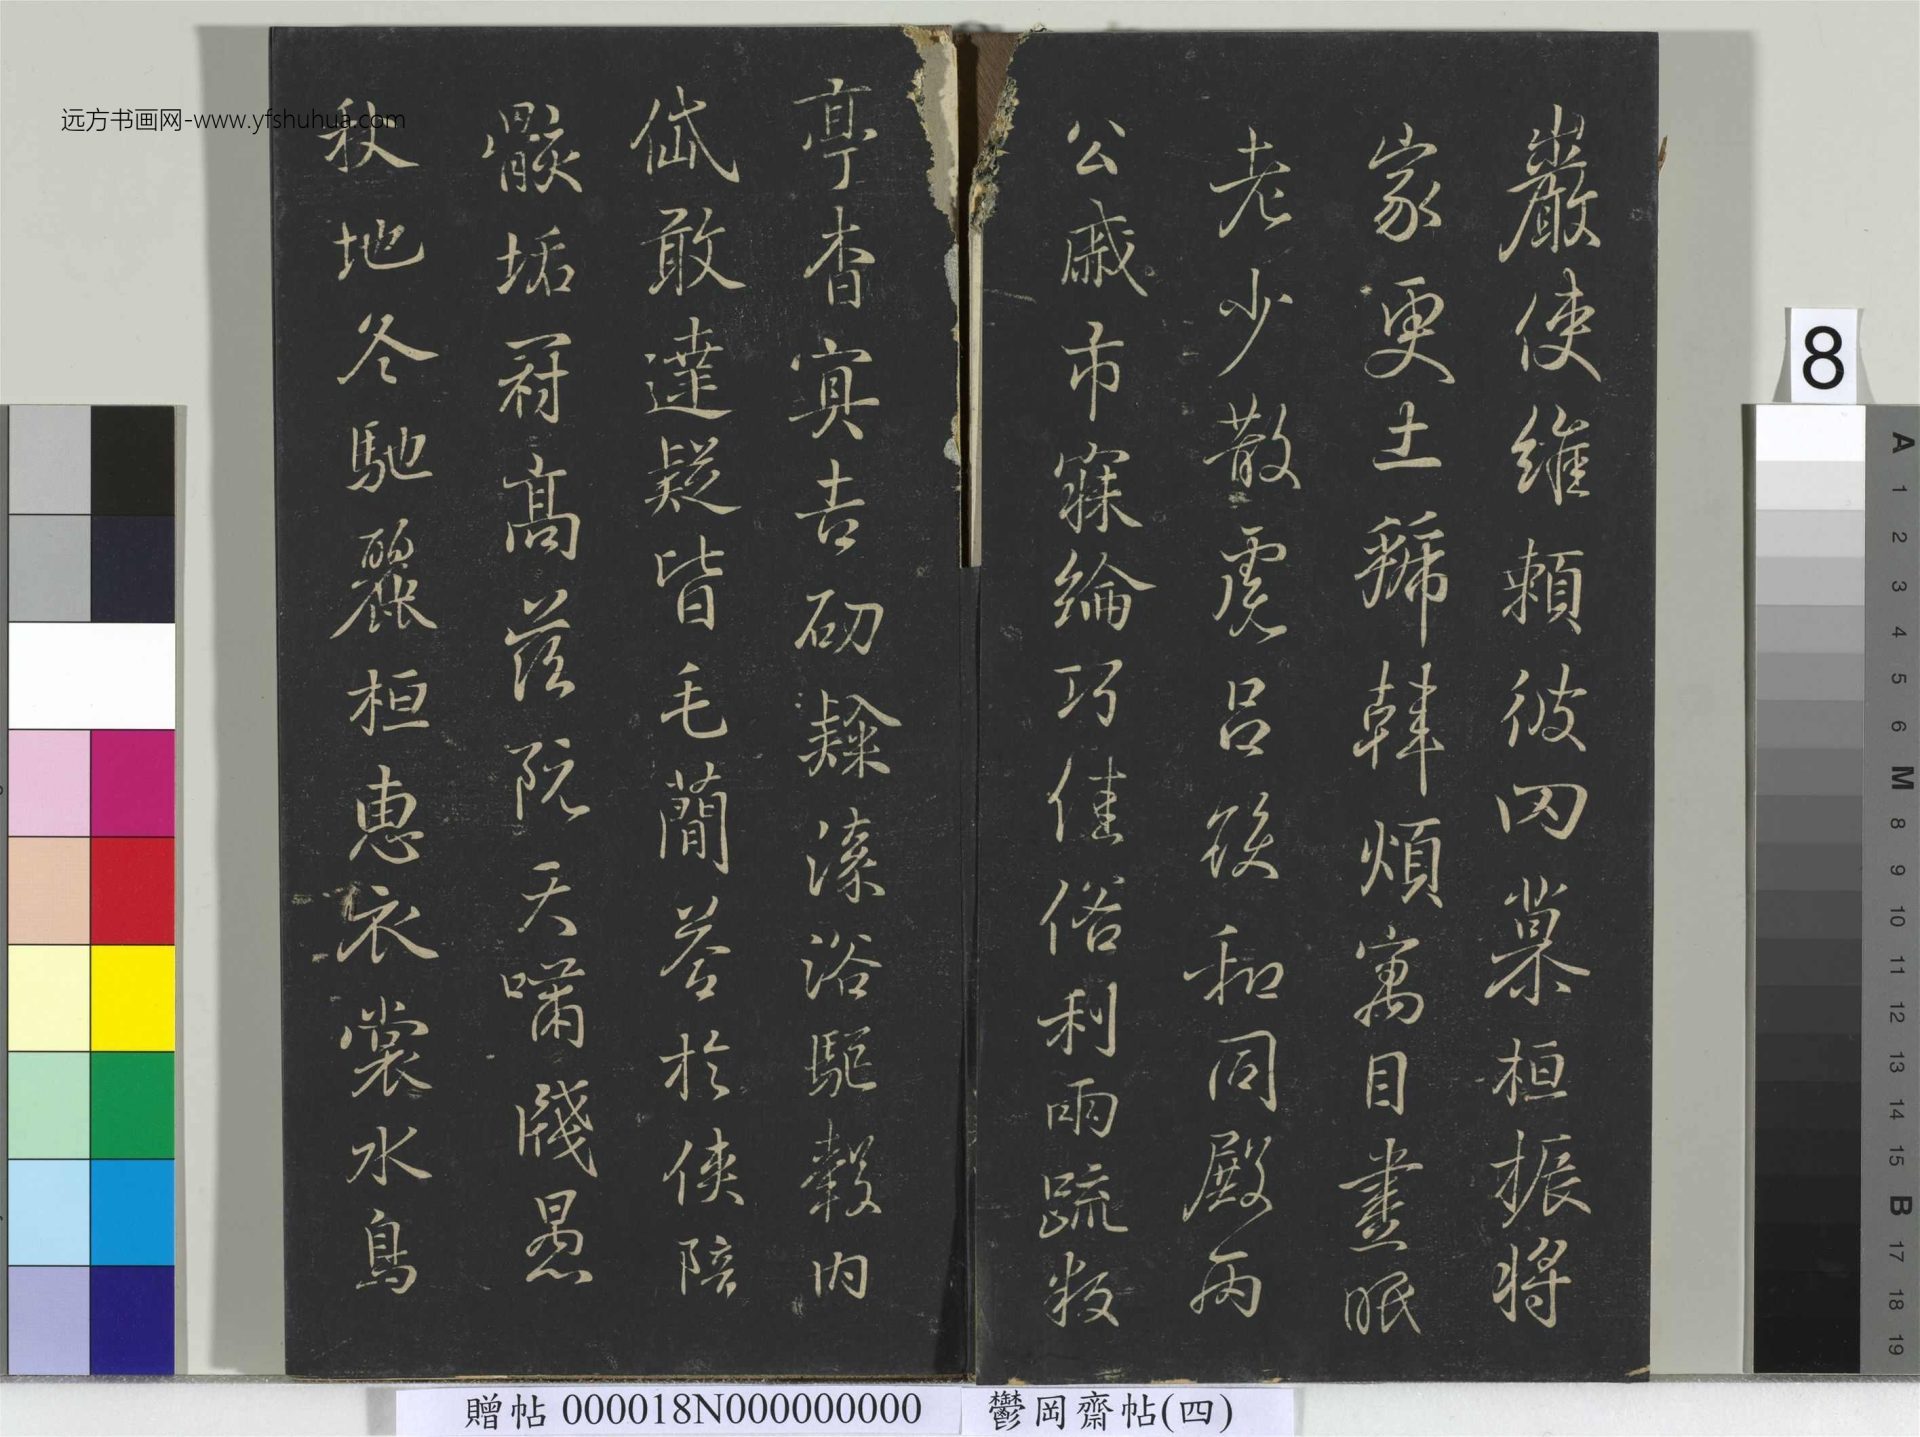 巖使維賴彼巢桓振將
家更土韓煩寓目晝眠
老少散處呂後和同殿而
公戚市寐綸巧佳俗利雨疏
亭杳寘吉砌溱浴駈轂内
岱敢達疑皆毛簡荅於俠陪
骸垢冠高落阮天嘯牋愚
秋地冬馳麗桓惠衣裳水鳥
远方书画网-www.yfshuhua.com
8
A
1
2
3
4
5
6
M
8
9
10
11
12
13
14
15
B
17
18
19
贈帖 000018N000000000
鬱岡齋帖(四)